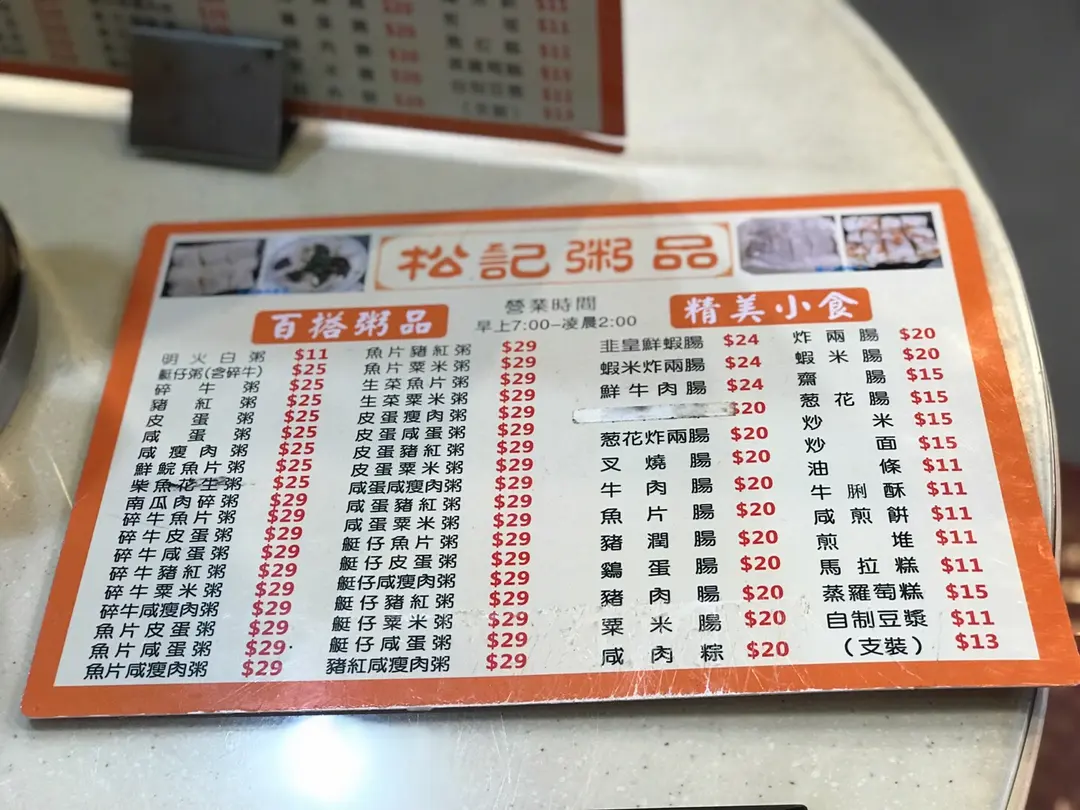 松記粥品
營業時間
早上7:00-凌晨2:00
百搭粥品
明火白粥 $11
艇仔粥(含碎牛) $25
碎牛粥 $25
豬紅粥 $25
皮蛋粥 $25
咸蛋粥 $25
咸瘦肉粥 $25
鮮鯇魚片粥 $25
柴魚花生粥 $25
南瓜肉碎粥 $29
碎牛魚片粥 $29
碎牛皮蛋粥 $29
碎牛咸蛋粥 $29
碎牛豬紅粥 $29
碎牛粟米粥 $29
碎牛咸瘦肉粥 $29
魚片皮蛋粥 $29
魚片咸蛋粥 $29
魚片咸瘦肉粥 $29
魚片豬紅粥 $29
魚片粟米粥 $29
生菜魚片粥 $29
生菜粟米粥 $29
皮蛋瘦肉粥 $29
皮蛋咸蛋粥 $29
皮蛋豬紅粥 $29
皮蛋粟米粥 $29
咸蛋咸瘦肉粥 $29
咸蛋豬紅粥 $29
咸蛋粟米粥 $29
艇仔魚片粥 $29
艇仔皮蛋粥 $29
艇仔咸瘦肉粥 $29
艇仔豬紅粥 $29
艇仔粟米粥 $29
艇仔咸蛋粥 $29
豬紅咸瘦肉粥 $29
精美小食
韭皇鮮蝦腸 $24
蝦米炸兩腸 $24
鮮牛肉腸 $24
$20
葱花炸兩腸 $20
叉燒腸 $20
牛肉腸 $20
魚片腸 $20
豬潤腸 $20
鷄蛋腸 $20
豬肉腸 $20
粟米腸 $20
咸肉粽 $20
炸兩腸 $20
蝦米腸 $20
齋腸 $15
葱花腸 $15
炒米 $15
炒面 $15
油條 $11
牛脷酥 $11
咸煎餅 $11
煎堆 $11
馬拉糕 $11
蒸羅萄糕 $15
自制豆漿 $11
(支裝) $13